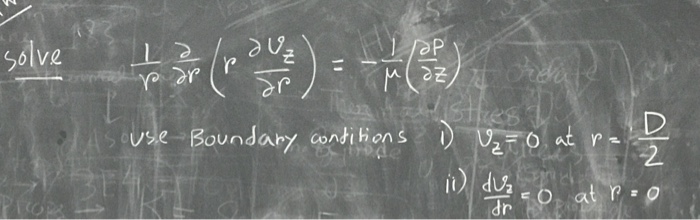 solve 1/r ∂/∂r (r ∂v_z/∂r) = -1/μ (∂P/∂z)
use Boundary conditions i) v_z = 0 at r = D/2
ii) dv_z/dr = 0 at r = 0